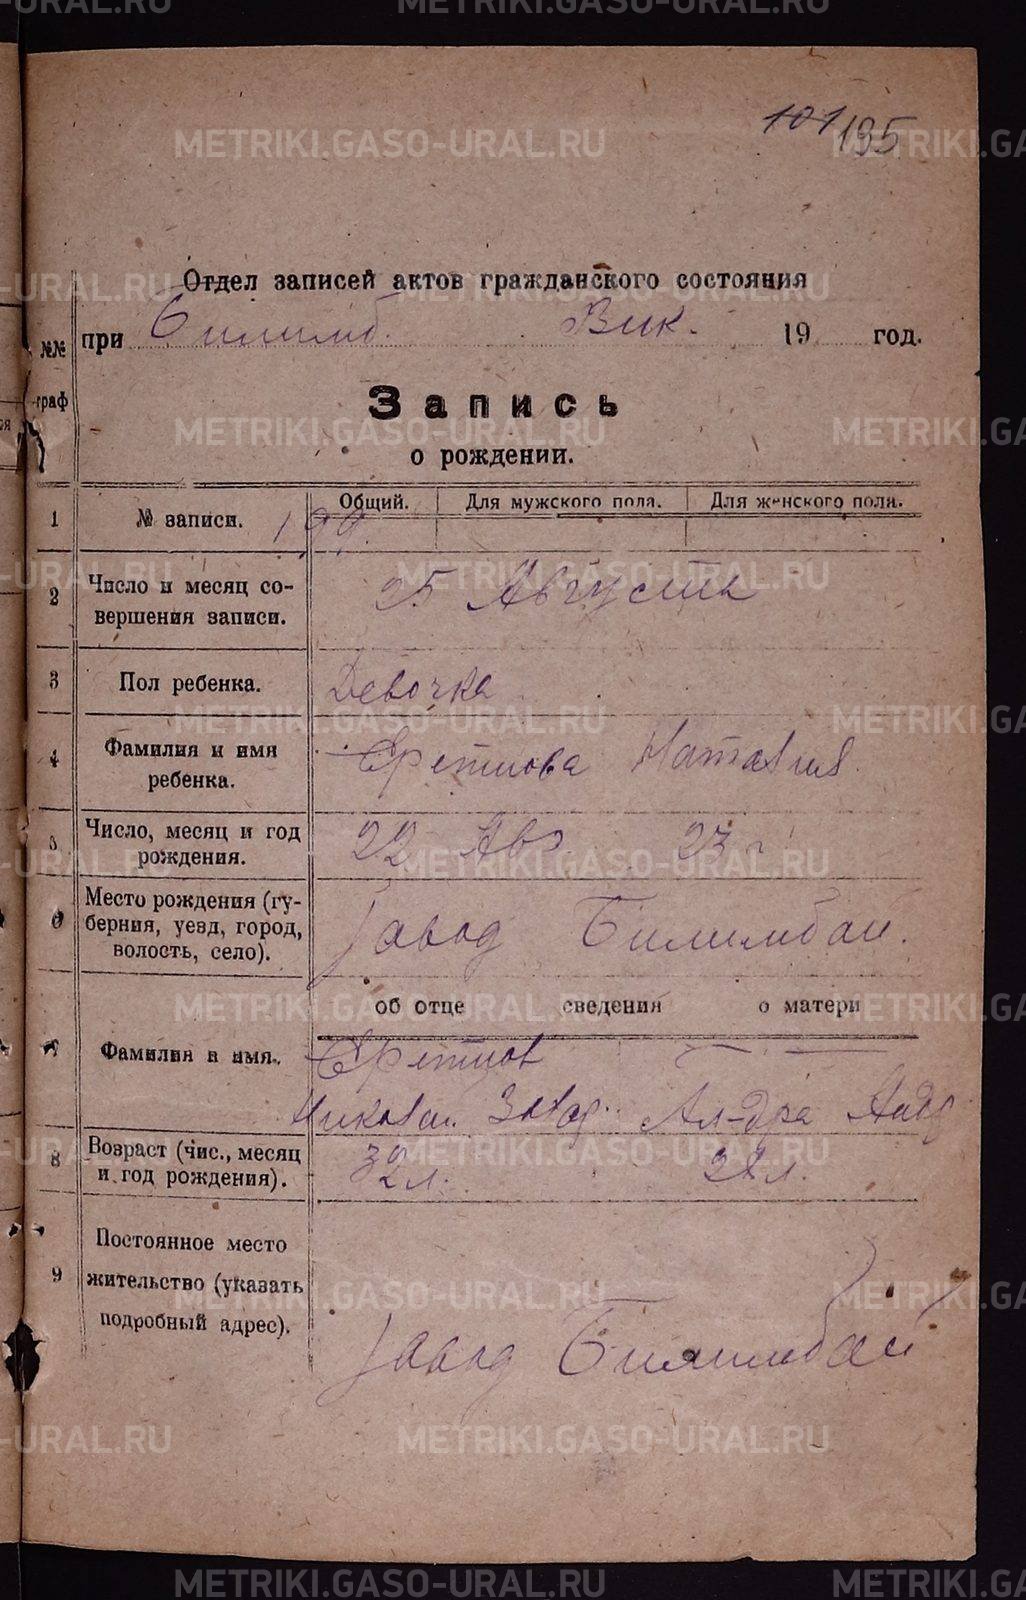 101 195
Отдел записей актов гражданского состояния
при Билимб. Вик. 19 год.
№№
граф
Запись
о рождении.
Общий. Для мужского пола. Для женского пола.
1 № записи. 199
2 Число и месяц со-
вершения записи.
25 Августа
3 Пол ребенка. Девочка
4 Фамилия и имя
ребенка.
Наталия
Число, месяц и год
рождения.
22 Авг. 23 г
6 Место рождения (гу-
берния, уезд, город,
волость, село).
Завод Билимбаи.
об отце сведения о матери
7 Фамилия и имя.
Николай Ал-дра
8 Возраст (чис., месяц
и год рождения).
32 л. 28 л.
9 Постоянное место
жительство (указать
подробный адрес).
Завод Билимбай
METRIKI.GASO-URAL.RU